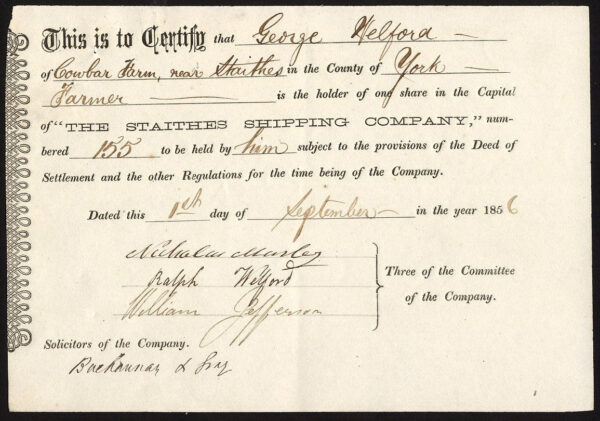 This is to Certify that George Welford
of Cowbar Farm, near Staithes in the County of York
Farmer is the holder of one share in the Capital
of "THE STAITHES SHIPPING COMPANY," num-
bered 155 to be held by him subject to the provisions of the Deed of
Settlement and the other Regulations for the time being of the Company.
Dated this 1st day of September in the year 1856
Nicholas
Ralph Welford
William Jefferson
Three of the Committee
of the Company.
Solicitors of the Company.
Buchannan & Gray